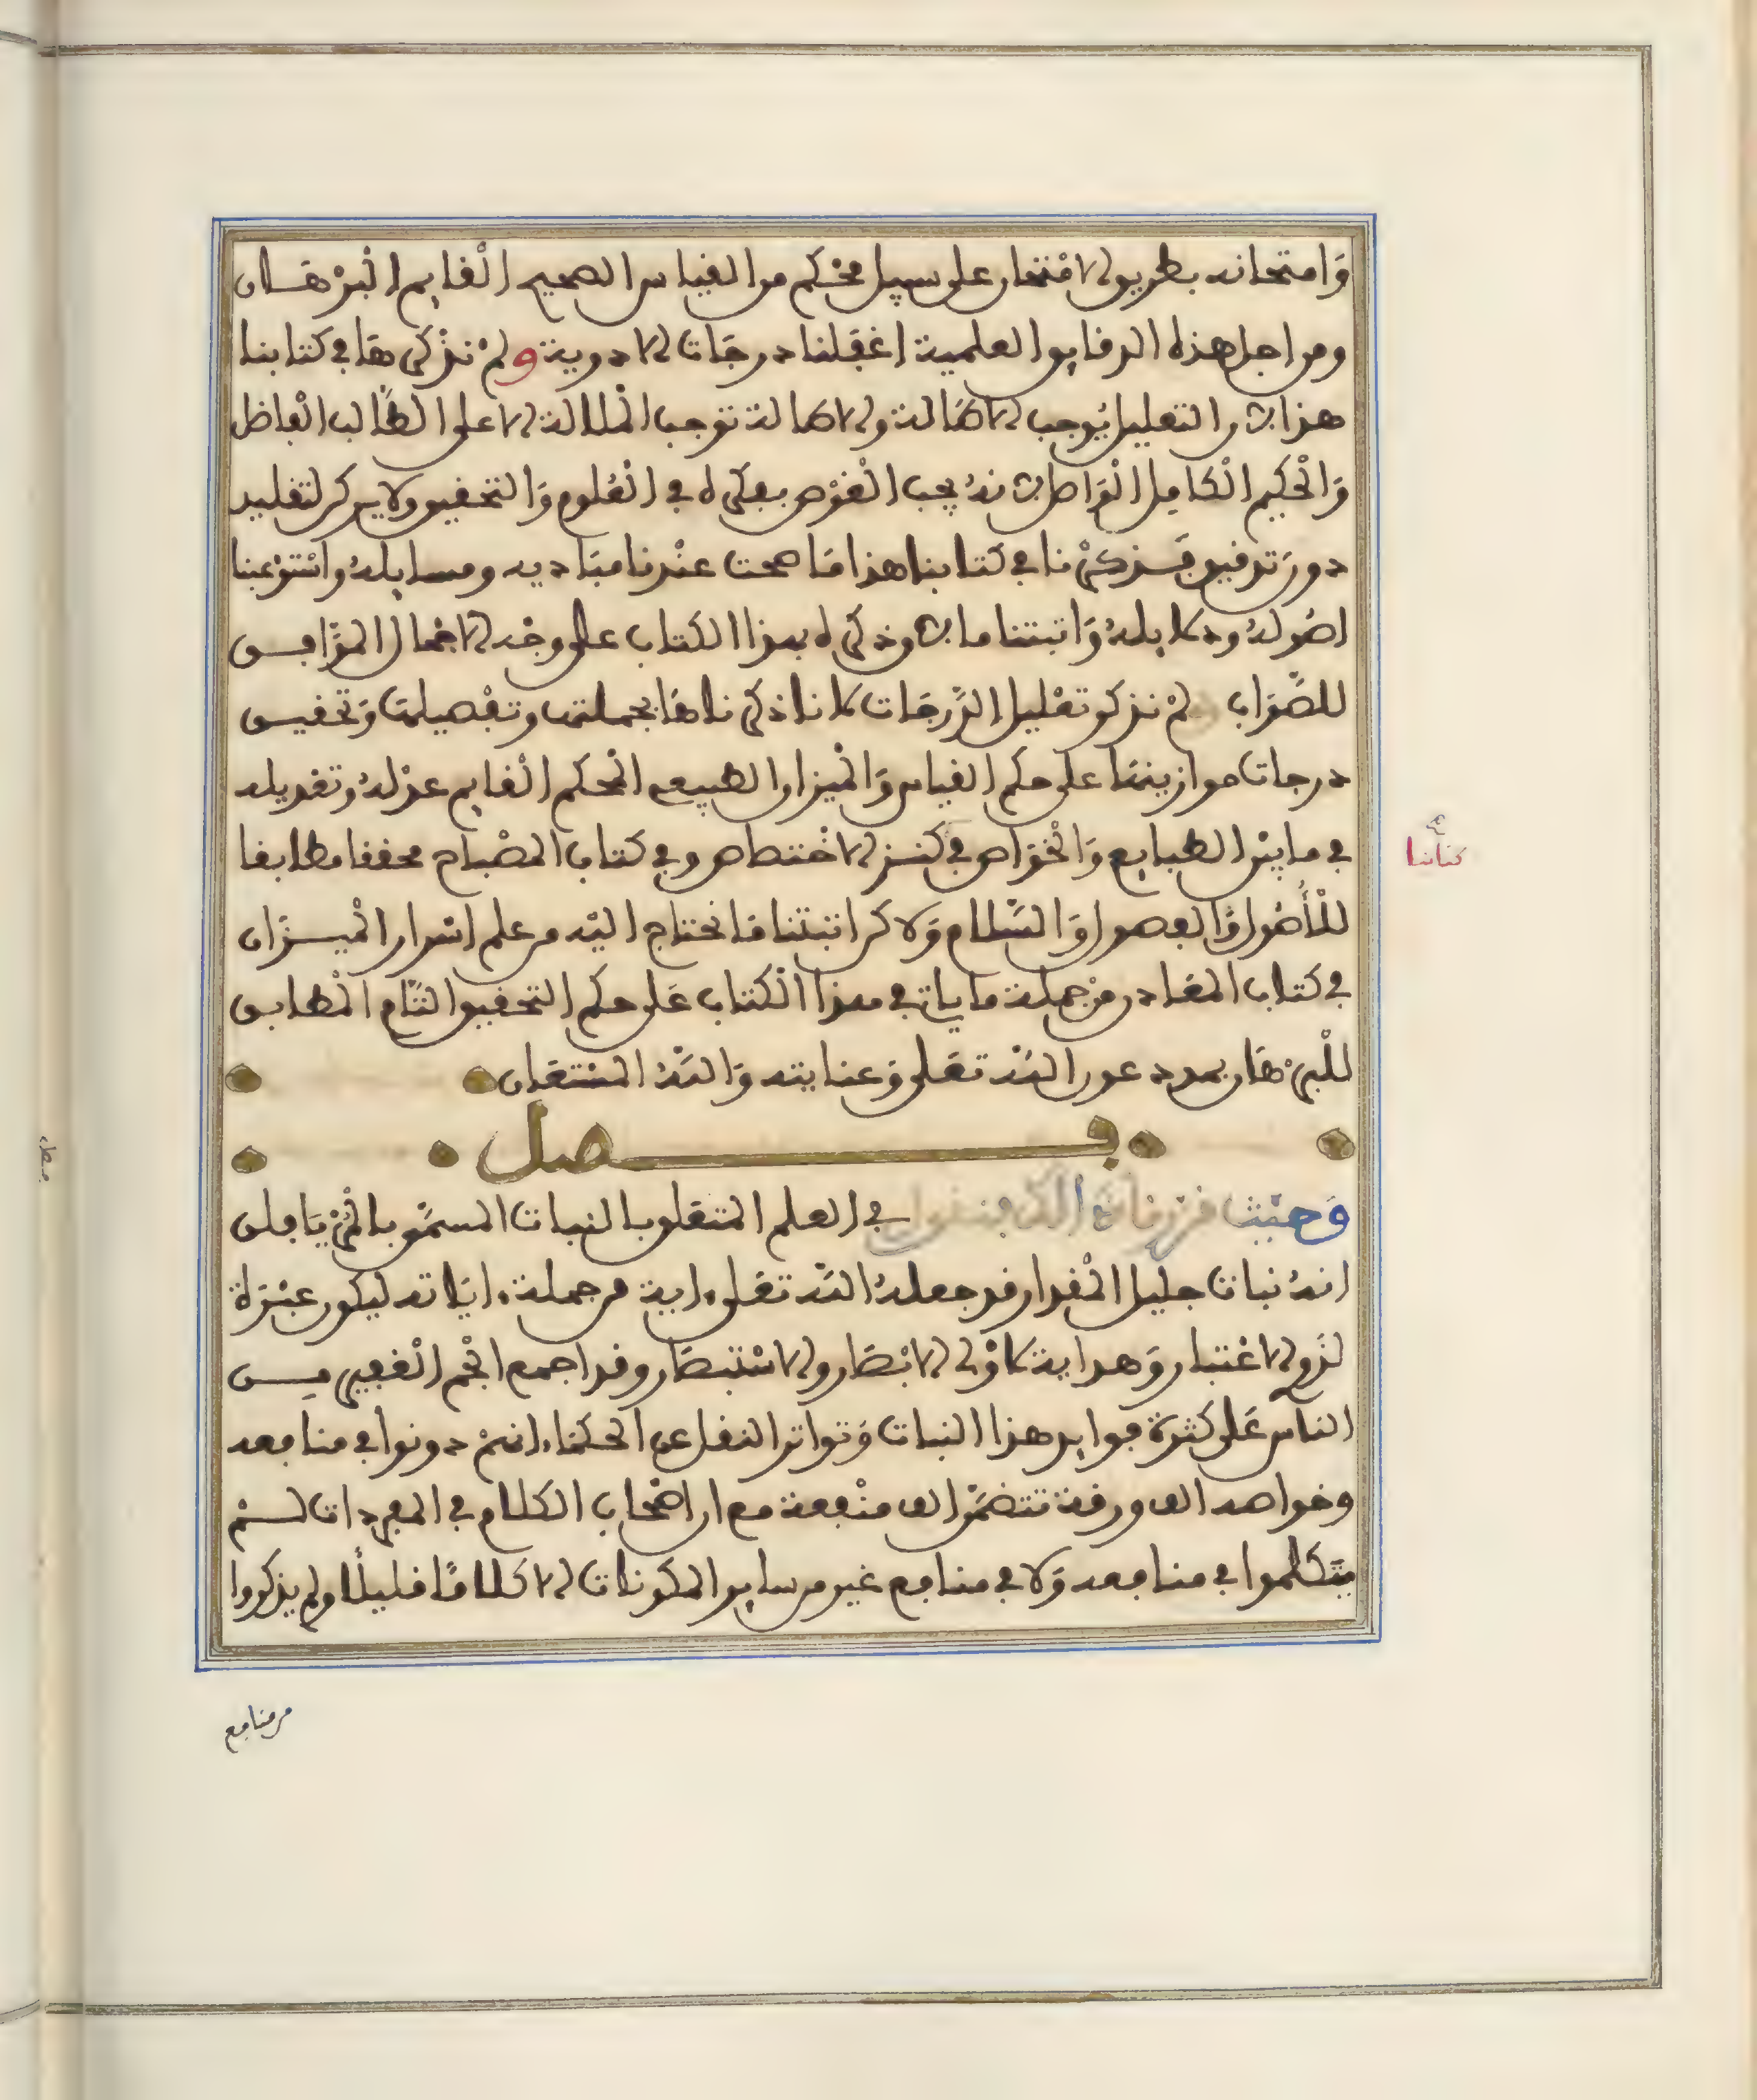 وَامتحانه بطريق الامْتحان على سبيل محْكم من القياس الصحيح القايم البرْهَان
ومن اجل هذه الدقايق العلمية اغفلنا درجَات الادوية ولمْ نذْكرهَا في كتابنا
هذا لان التعليل يُوجب الاطَالة والاطالة توجب الملالة الا على الطَّالب الفاضل
وَالْحكيم الْكامِل الْوَاصل لانهُ يحب الْغوْص بفكره في الْعُلوم وَالتحقيق ولا يركن لتقليد
دون تَدقيق فَذكرْنا في كتابنا هذا مَا صحت عنْدنا مبَاديه ومسايلهُ واسْتوْعبنا
اصُولهُ ودلايلهُ وَاثبتنا ما لاق ذكره بهذا الكتاب على وجْه الاجمال الموَافق
للصَّوَاب لمْ نذكر تعْليل الدَّرجَات لاننا ذكرناهَا بجملتها وتفْصيلها وَتحقيق
درجات موازينهَا على حكم القياس وَالْميْزان الطبيعي المْحكم الْقايم عدْلهُ وتعديله
في ما بيْن الطبايع وَالْخوَاص في كنز الاخْتصاص وفي كتاب المصْباح محققا مطابقا
كتابنا
للْأصُول وَالفصول وَالسَّلام وَلاكن اثبتنا مَا نحْتاج اليْه من علم اسْرار الْميزَان
في كتاب المعَادن منْ جملة ما ياتي في هذا الْكتاب عَلى حكم التحقيق التَّام الْمْطابق
للْبرْهَان بمدد عون اللَّه تعَلى وَعنايته وَاللَّهُ الْمسْتعَان
فصل
وَحيْث قرّرنا في العلم المتعلق بالنبات المسمَّى
انهُ نبات جليل الْمْقدار قد جعلهُ اللَّه تعَلى ءاية من جملة ءايَاته ليكون عبْرَة
لذَوي الاعْتبار وَهداية لاوْلي الابْصَار والاسْتبْصَار وقد اجمع الْجم الْغفير من
النَّاس عَلى كثرة فوايد هذا النبات وَتواتر النقل عن الحكمَاء انهمْ دونوا في منافعه
وخواصه الف ورقة تتضمَّن الف منْفعة مع ان اصْحاب الكلام في المفردات لم
يتكلموا في منافعه وَلا في منافع غيره من ساير المكونات الا كلامًا قليلًا ولم يذكروا
من منافع